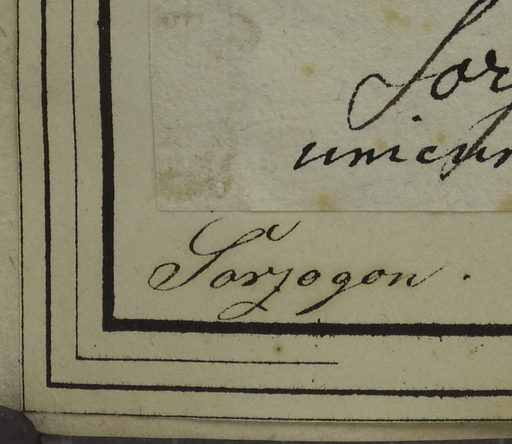 Sorz
unicum
Sorzogon.